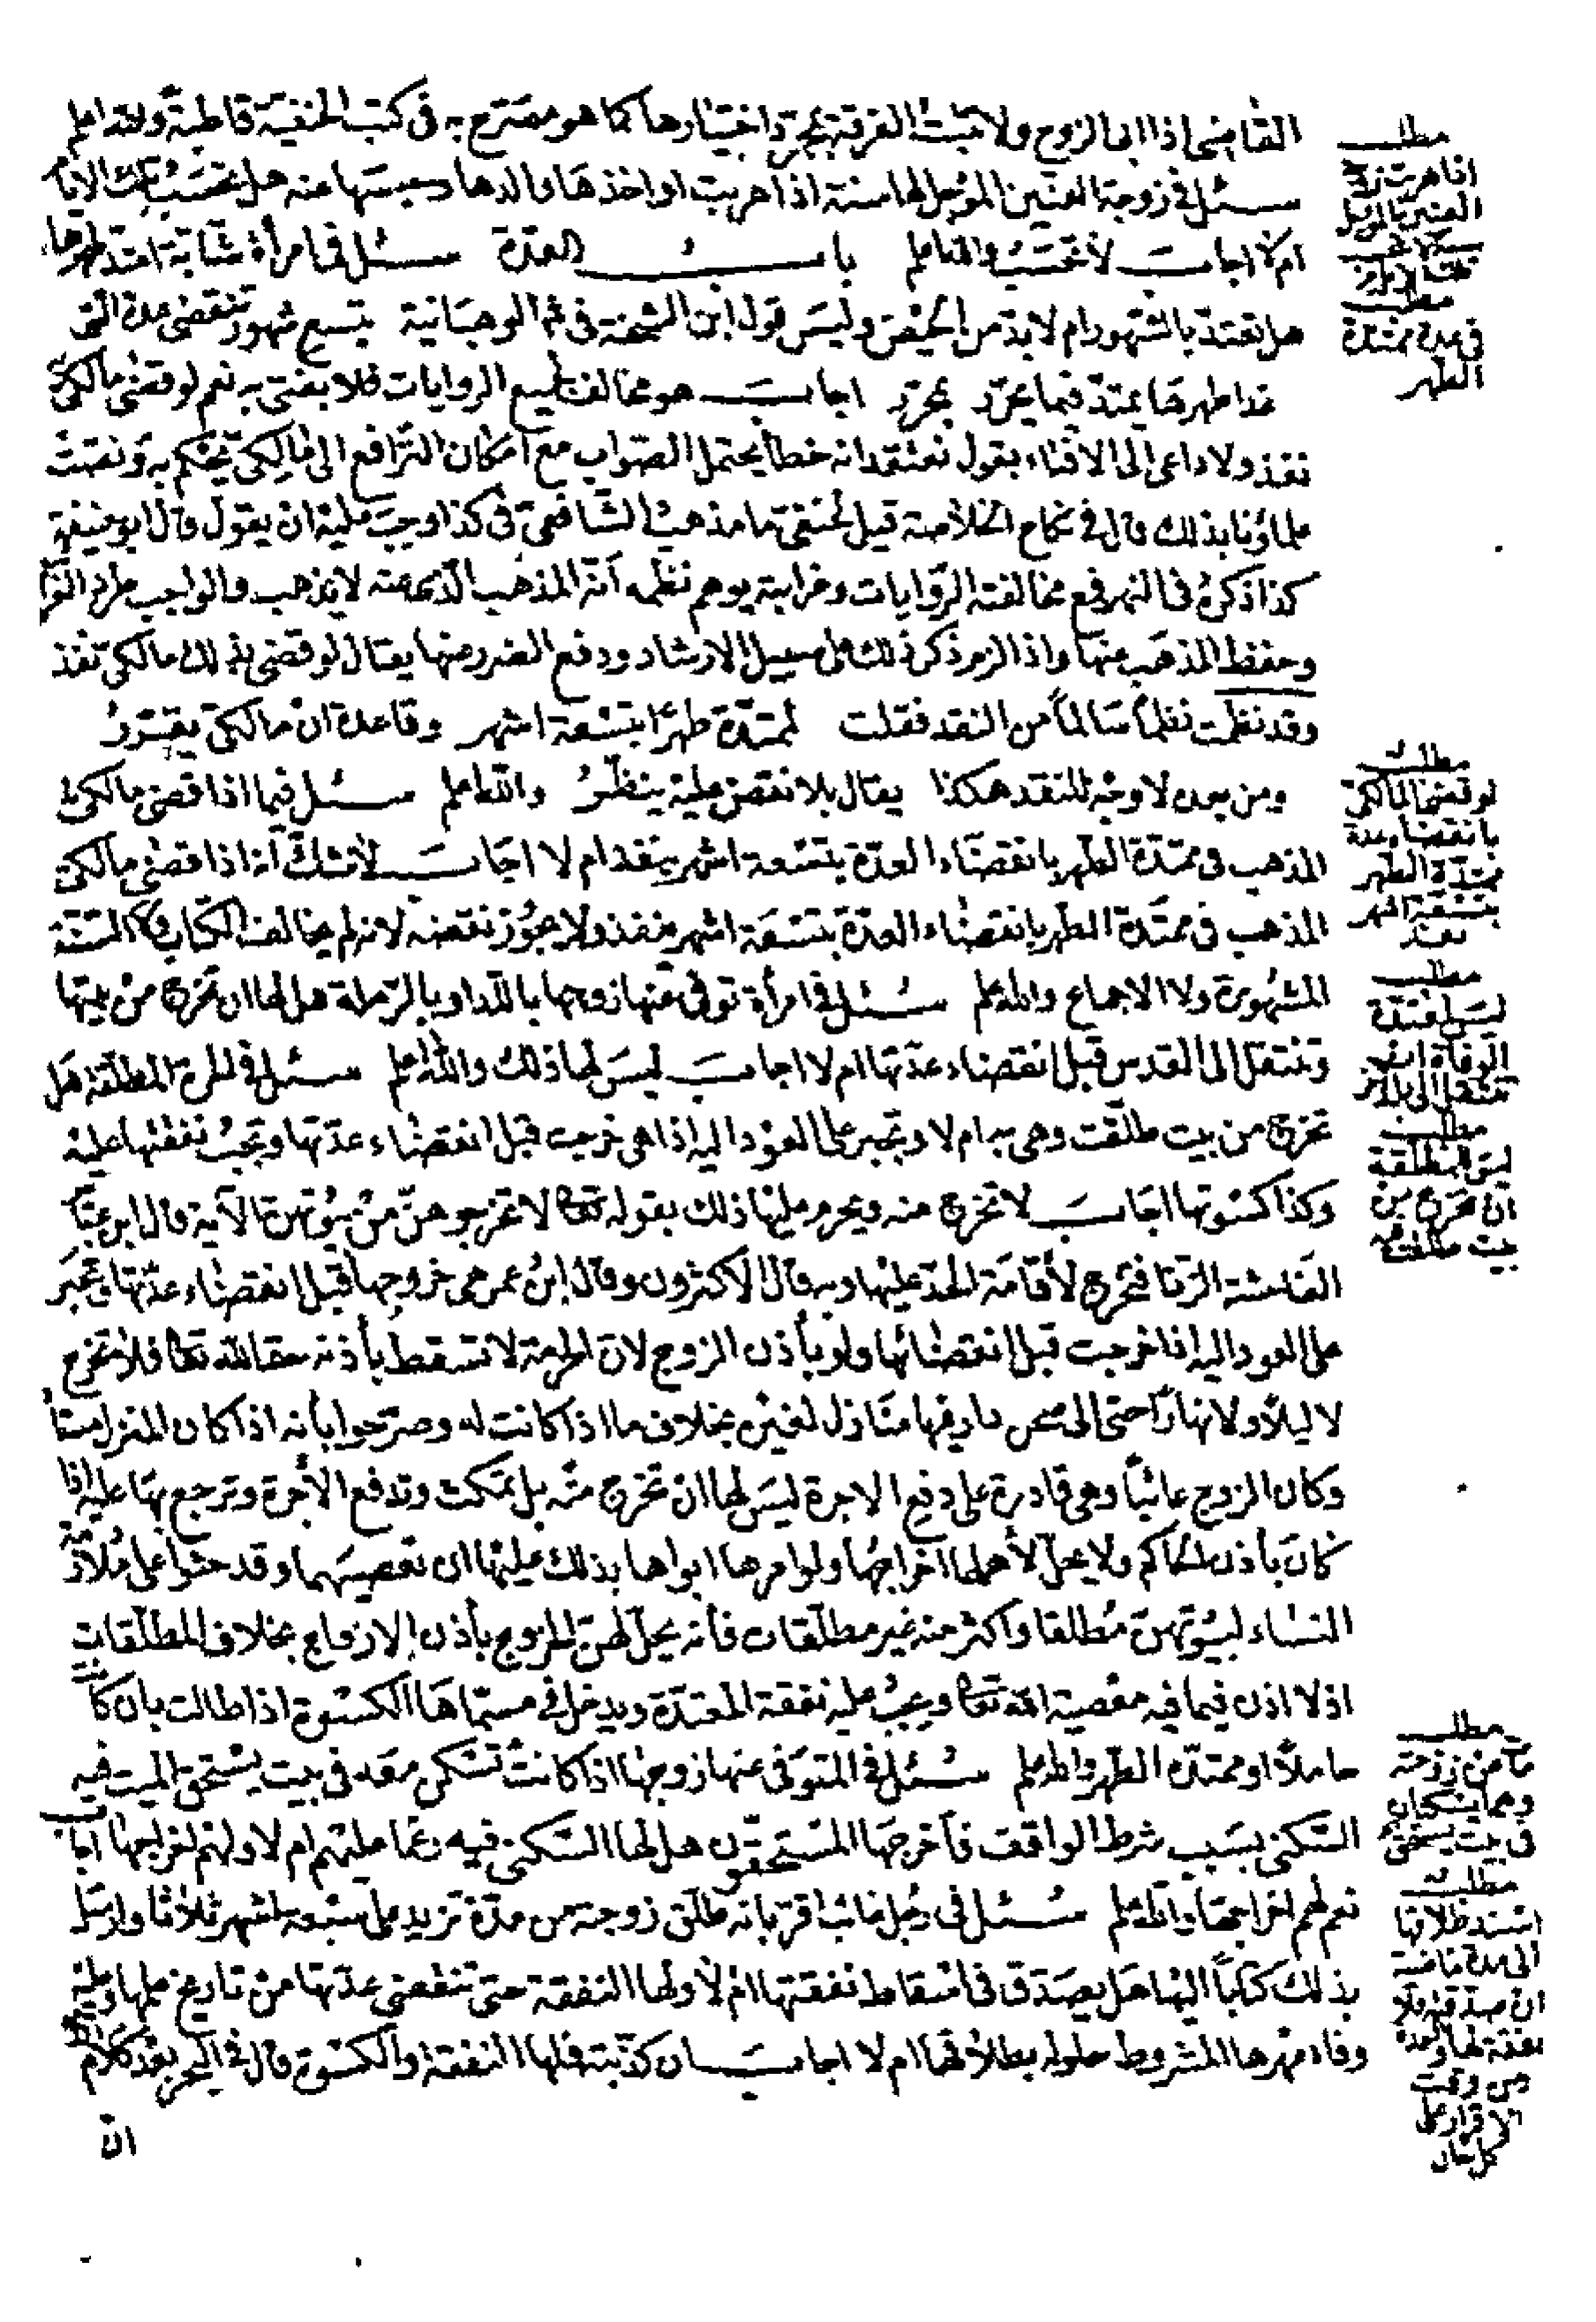 القاضي اذا ابى الزوج ولا تثبت الفرقة بمجرد اختيارها كما هو مصرح به في كتب الحنفية قاطبة والله اعلم
سئل في زوجة العنين المؤجل لها سنة اذا هربت او اخذها والدها وحبسها عنه هل تحتسب تلك الايام
ام لا اجاب لا تحتسب والله اعلم باب العدة سئل في امرأة شابة امتد طهرها
هل تعتد بالشهور ام لا بد من الحيض وليس قول ابن الشحنة في نظم الوهبانية بتسع شهور تنقضي عدة التي
غدا طهرها يمتد فيما يحرر اجاب هو مخالف لجميع الروايات فلا يفتى به نعم لو قضى مالكي
نفذ ولا داعي الى الافتاء بقول نعتقد انه خطأ يحتمل الصواب مع امكان الترافع الى مالكي يحكم به ونصت
علماؤنا بذلك قال في نكاح الخلاصة قيل لحنفي ما مذهب الشافعي في كذا وجب عليه ان يقول قال ابو حنيفة
كذا ذكره في النهر فمع مخالفة الروايات وغرابته يوهم نظمه انه المذهب الذي عنه لا يذهب والواجب
وحفظ المذهب منها واذا لزم ذكر ذلك على سبيل الارشاد ودفع الضرر منها يقال لو قضى بذلك مالكي نفذ
وقد نظمت نظما سالما من النقد فقلت لممتدة طهرا بتسعة اشهر وقا عدة ان مالكي يقرر
ومن بعده لا وجه للنقد هكذا يقال بلا نقض عليه ينظر والله اعلم سئل فيما اذا قضى مالكي
المذهب في ممتدة الطهر بانقضاء العدة بتسعة اشهر ينفذ ام لا اجاب لا شك انه اذا قضى مالكي
المذهب في ممتدة الطهر بانقضاء العدة بتسعة اشهر ينفذ ولا يجوز نقضه لانه لم يخالف الكتاب ولا السنة
المشهورة ولا الاجماع والله اعلم سئل في امرأة توفي عنها زوجها باللد او بالرملة هل لها ان تخرج من بيتها
وتنتقل الى القدس قبل انقضاء عدتها ام لا اجاب ليس لها ذلك والله اعلم سئل في المرة المطلقة هل
تخرج من بيت طلقت وهي به ام لا وتجبر على العود اليه اذا هي خرجت قبل انقضاء عدتها وتجب نفقتها عليه
وكذا كسوتها اجاب لا تخرج منه ويحرم عليها ذلك بقوله تعالى لا تخرجوهن من بيوتهن الآية قال ابن عباس
الفاحشة الزنا فتخرج لأقامة الحد عليها وبه قال الاكثرون وقال ابن عمر هي خروجها قبل انقضاء عدتها وتجبر
على العود اليه اذا خرجت قبل انقضائها ولو بأذن الزوج لان الحرمة لا تسقط بأذنه حقا لله تعالى فلا تخرج
لا ليلا ولا نهارا حتى الى صحن دار فيها منازل لغيره بخلاف ما اذا كانت له وصرحوا بأنه اذا كان المنزل
وكان الزوج غائبا وهي قادرة على دفع الاجرة ليس لها ان تخرج منه بل تمكث وتدفع الأجرة وترجع بها عليه اذا
كان بأذن الحاكم ولا يحل لأهلها اخراجها ولو امرها ابواها بذلك عليها ان تعصيهما وقد حثوا على ملازمة
النساء لبيوتهن مطلقا واكثر منه غير مطلقات فأنه يحل لهن الخروج بأذن الازواج بخلاف المطلقات
اذ لا اذن فيما فيه معصية الله تعالى ويجب عليه نفقة المعتدة ويدخل في مسماها الكسوة اذا طالت بان كانت
حاملا او ممتدة الطهر والله اعلم سئل في المتوفى عنها زوجها اذا كانت تسكن معه في بيت يستحق الميت فيه
السكنى بسبب شرط الواقف فأخرجها المستحقون هل لها السكنى فيه رغما عليهم ام لا ولهم اخراجها اجاب
نعم لهم اخراجها والله اعلم سئل في رجل غائب اقر بانه طلق زوجته من مدة تزيد على سبعة اشهر ثلاثا وارسل
بذلك كتابا اليها هل يصدق في اسقاط نفقتها ام لا ولها النفقة حتى تنقضي عدتها من تاريخ علمها وعليه
وفاء مهرها المشروط حلوله بطلاقها ام لا اجاب ان كذبته فلها النفقة والكسوة قال في البحر بعد كلام
ان
مطلب
اذا هربت زوجة
العنين المؤجل
مطلب
في عدة ممتدة
الطهر
مطلب
لو قضى المالكي
بانقضاء عدة
ممتدة الطهر
بتسعة اشهر
نفذ
مطلب
ليس لمعتدة
الوفاة ان
تنتقل الى بلد اخر
مطلب
ليس للمطلقة
ان تخرج من
بيت طلقت به
مطلب
مات عن زوجته
وهما يسكنان
في بيت يستحق
مطلب
اسند طلاقها
الى مدة ماضية
ان صدقته فلا
نفقة لها والعدة
من وقت
الاقرار على
كل حال